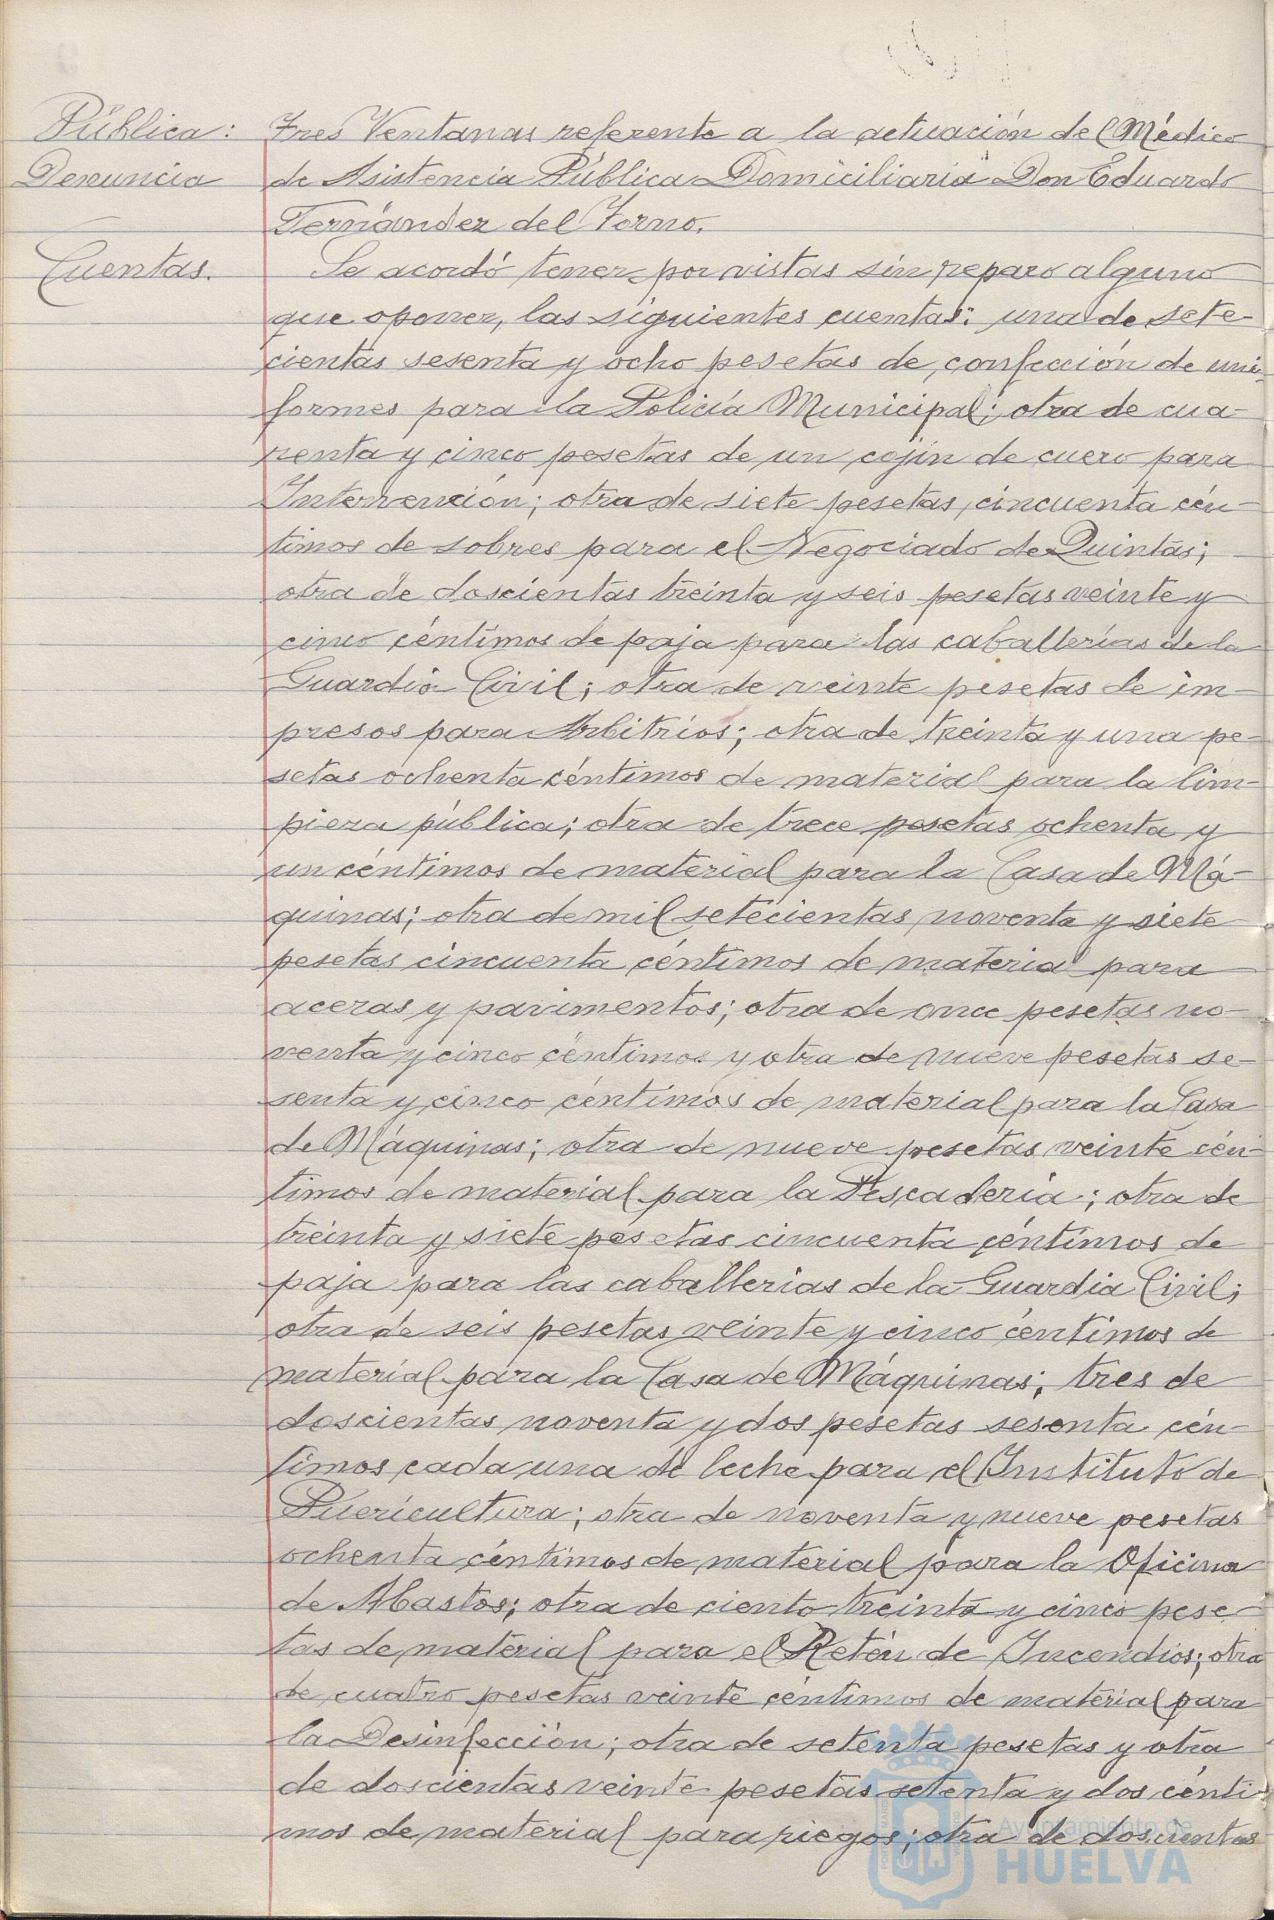 Pública:
Denuncia
Tres Ventanas referente a la actuación del Médico
de Asistencia Pública Domiciliaria Don Eduardo
Fernández del Torno.
Cuentas.
Se acordó tener por vistas sin reparo alguno
que oponer, las siguientes cuentas: una de sete-
cientas sesenta y ocho pesetas de confección de uni-
formes para la Policía Municipal; otra de cua-
renta y cinco pesetas de un cojín de cuero para
Intervención; otra de siete pesetas, cincuenta cén-
timos de sobres para el Negociado de Quintas;
otra de doscientas treinta y seis pesetas veinte y
cinco céntimos de paja para las caballerías de la
Guardia Civil; otra de veinte pesetas de im-
presos para Arbitrios; otra de treinta y una pe-
setas ochenta céntimos de material para la lim-
pieza pública; otra de trece pesetas ochenta y
un céntimos de material para la Casa de Má-
quinas; otra de mil setecientas noventa y siete
pesetas cincuenta céntimos de material para
aceras y pavimentos; otra de once pesetas no-
venta y cinco céntimos y otra de nueve pesetas se-
senta y cinco céntimos de material para la Casa
de Máquinas; otra de nueve pesetas veinte cén-
timos de material para la Pescadería; otra de
treinta y siete pesetas cincuenta céntimos de
paja para las caballerías de la Guardia Civil;
otra de seis pesetas veinte y cinco céntimos de
material para la Casa de Máquinas; tres de
doscientas noventa y dos pesetas sesenta cén-
timos cada una de leche para el Instituto de
Puericultura; otra de noventa y nueve pesetas
ochenta céntimos de material para la Oficina
de Abastos; otra de ciento treinta y cinco pese-
tas de material para el Retén de Incendios; otra
de cuatro pesetas veinte céntimos de material para
la Desinfección; otra de setenta pesetas y otra
de doscientas veinte pesetas setenta y dos cénti-
mos de material para riegos; otra de doscientas
Ayuntamiento de
HUELVA